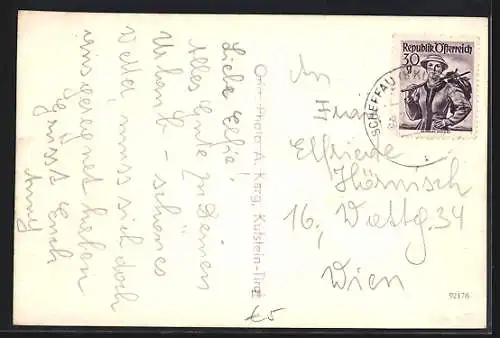 Liebe Elfie!
Alles Gute zu Deinen
Urlaub - schönes
Wetter, muss sich doch
ausgeregnet haben
Es grüsst Euch
Anny
Orig. Photo A. Karg, Kufstein-Tirol
An
Frau
Elfriede
Hörnisch
16, Wattg. 34
Wien
Republik Österreich
30
SCHEFFAU
£5
92176